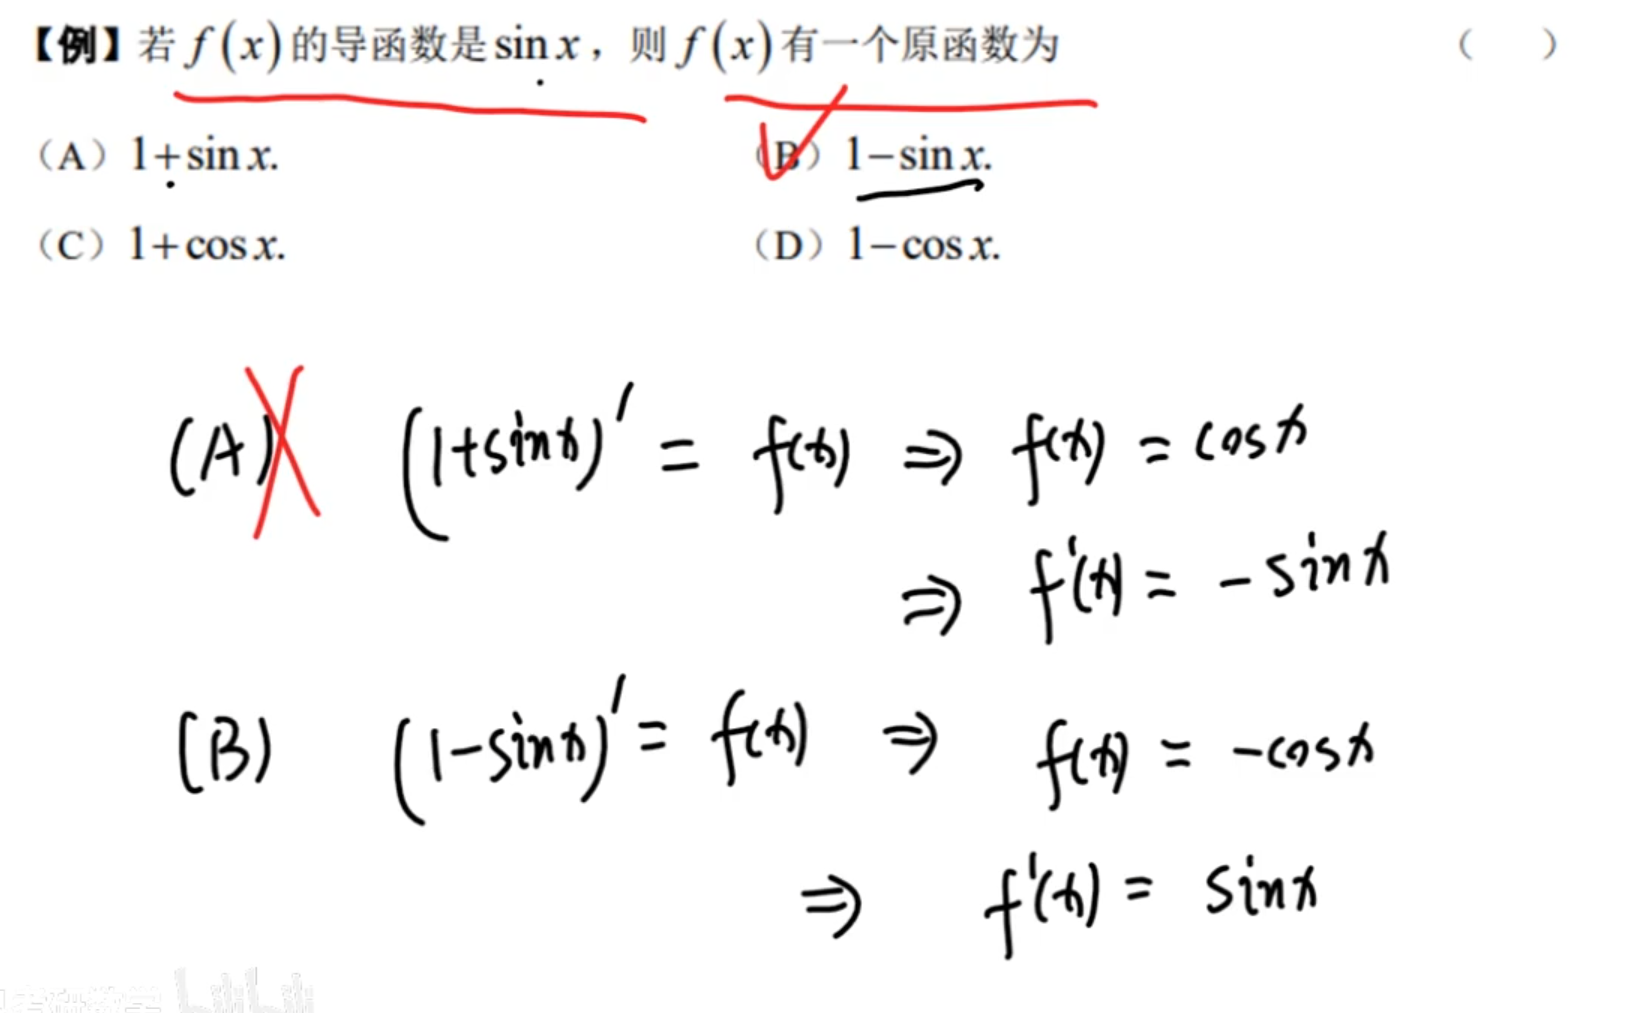 【例】若 f(x) 的导函数是 sin x，则 f(x) 有一个原函数为 （ ）
（A）1+sin x. （B）1−sin x.
（C）1+cos x. （D）1−cos x.
(A) (1+sinx)′ = f(x) ⇒ f(x) = cosx
⇒ f′(x) = −sinx
(B) (1−sinx)′ = f(x) ⇒ f(x) = −cosx
⇒ f′(x) = sinx
考研数学 bilibili